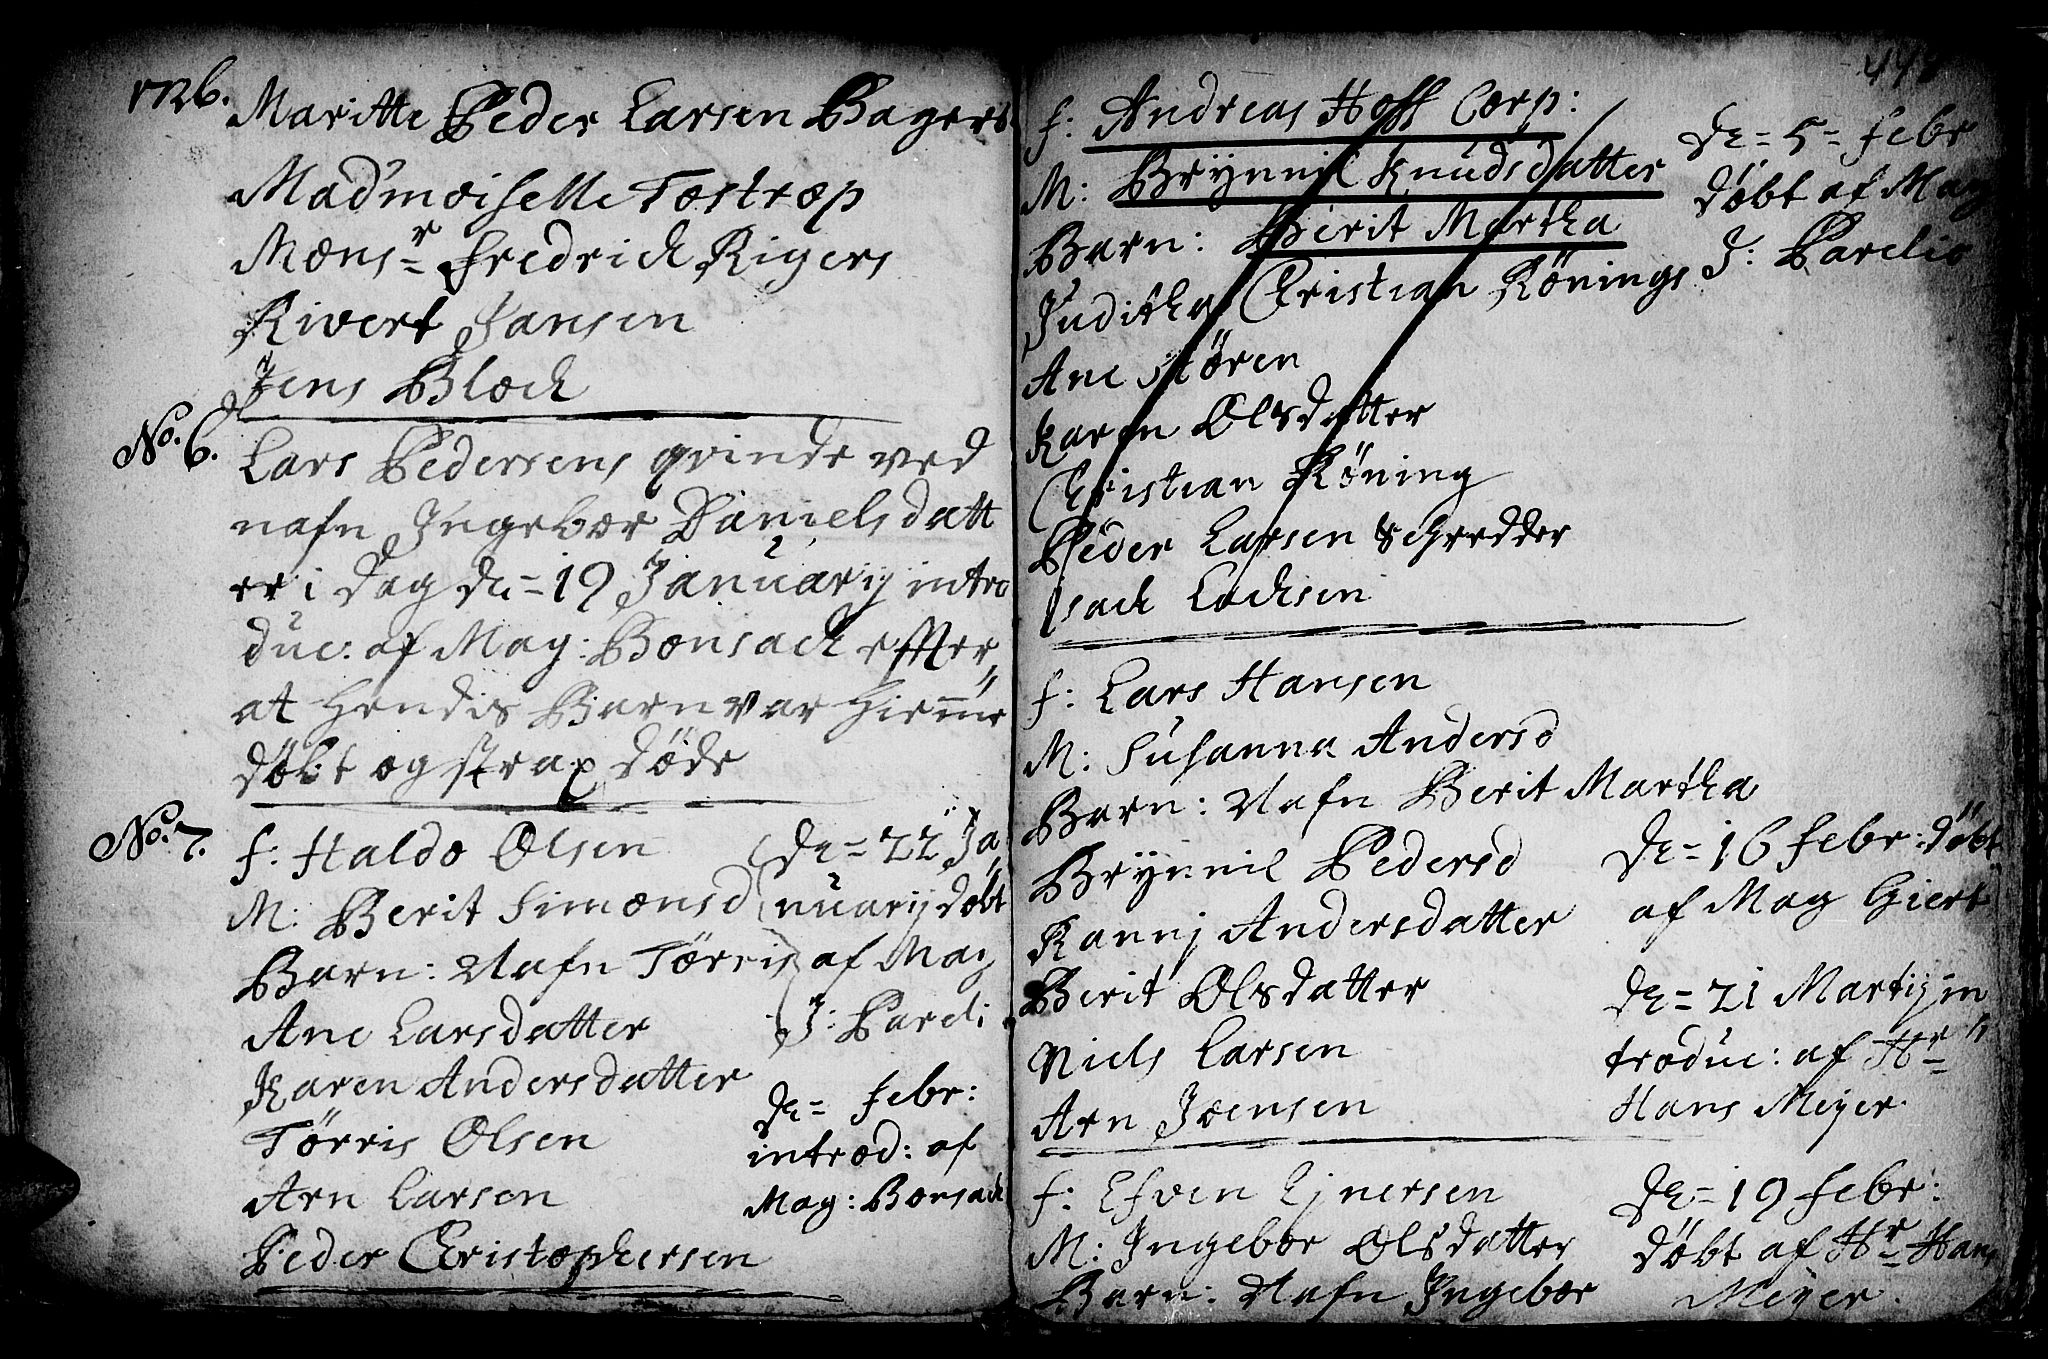 1726.
Maritte Peder Larsen Bagers
Mad'moiselle Tostrop
Monsr Fredrich Rigers
Rivert Jansen
Jens Bloch
No. 6.
Lars Pedersens qvinde ved
nafn Ingebor Danielsdatt
er i dag de = 19 Januarij intro
duc: af Mag: Bonsach effter,,
at hendis Barn var hieme
döbt og strax döde
No. 7.
f: Haldo Olsen
M: Berit Simonsd
Barn: Nafn Törris
Ane Larsdatter
Karen Andersdatter
Törris Olsen
Arn Larsen
Peder Christophersen
de = 22 Ja,,
nuarij döbt
af Mag
J: Pareli
de = febr:
introd: af
Mag: Bonsach
f: Andreas Hoff Corp:
M: Brynnil Knudsdatter
Barn: Berit Martha
Juditha Christian Rönings
Ane Stören
Karen Olsdatter
Christian Röning
Peder Larsen Schredder
Isach Lochsen
de = 5 = febr
döbt af Mag
J: Parelio
f: Lars Hansen
M: Susanna Andersd
Barn: Nafn Berit Martha
Brynnil Pedersd
Kannj Andersdatter
Berit Olsdatter
Niels Larsen
Arn Joensen
de = 16 febr: döbt
af Mag Giert
de = 21 Martij in
troduc: af Hr
Hans Meyer.
f: Efven Ejnersen
M: Ingebor Olsdatter
Barn: Nafn Ingebor
de = 19 febr:
döbt af Hr Hans
Meyer.